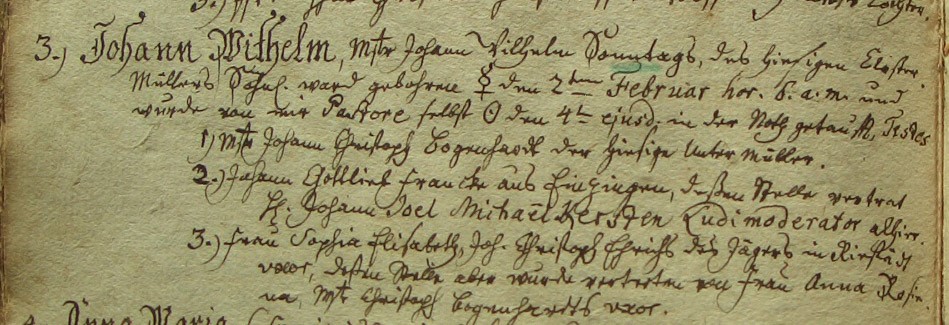 3.) Johann Wilhelm, Mstr Johann Wilhelm Sonntags, des hiesigen Closter
Müllers Söhnl. ward gebohren ☿ den 2ten Februar hor. 6. a. m. und
wurde von mir Pastore selbst ☉ den 4ten ejusd. in der Noth getauft, Testes
1) Mstr Johann Christoph Bogenhardt der hiesige Unter Müller.
2.) Johann Gottlieb Francke aus Einzingen, deßen Stelle vertrat
H. Johann Joel Michaël Kersten Ludimoderator alhier.
3.) Frau Sophia Elisabeth, Joh. Christoph Ehrichs des Jägers in Riestädt
uxor, deßen Stelle aber wurde vertreten von Frau Anna Rosi-
na, Mstr Christoph Bogenhardts uxor.
Anna Maria